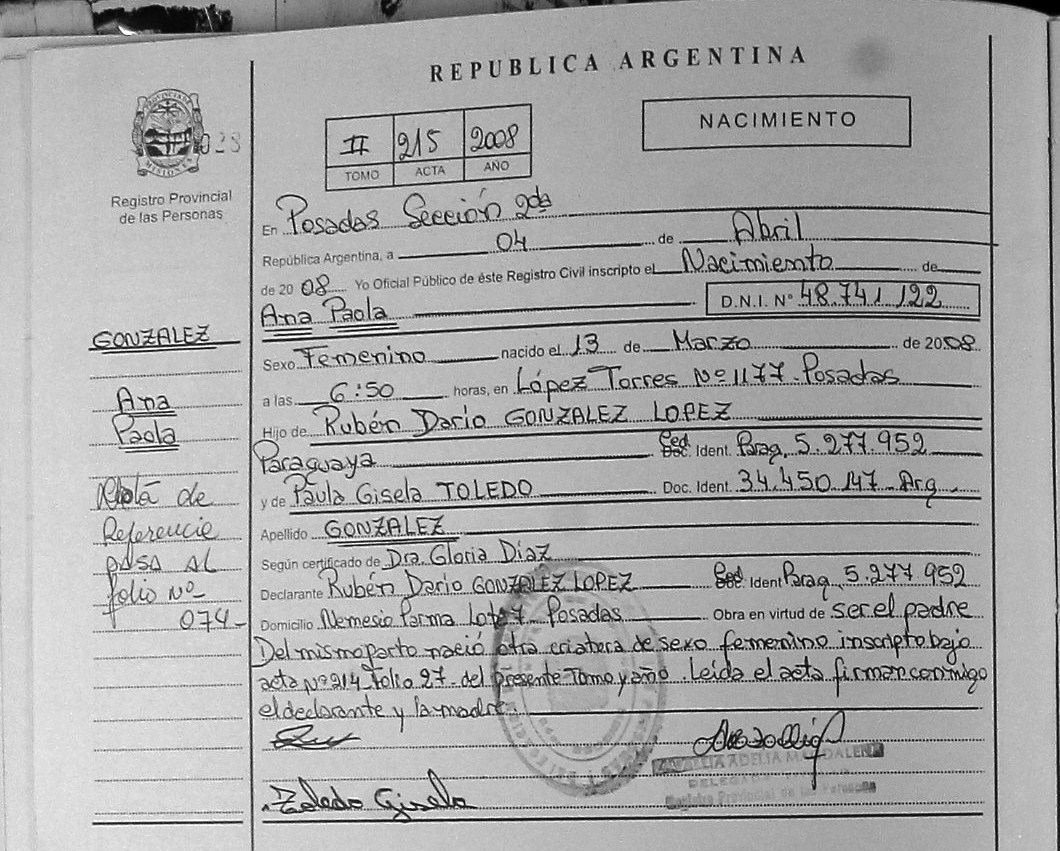 REPUBLICA ARGENTINA
PROVINCIA DE MISIONES
028
Registro Provincial
de las Personas
II 215 2008
TOMO ACTA AÑO
NACIMIENTO
En Posadas Sección 2da
República Argentina, a 04 de Abril
de 2008 Yo Oficial Público de éste Registro Civil inscripto el Nacimiento de
Ana Paola D.N.I. Nº 48.741.122
Sexo Femenino nacido el 13 de Marzo de 2008
a las 6:50 horas, en López Torres Nº 1177 - Posadas
Hijo de Rubén Dario GONZALEZ LOPEZ
Paraguaya Ced. Ident. Parag. 5.277.952
y de Paula Gisela TOLEDO Doc. Ident. 34.450.147 - Arg
Apellido GONZALEZ
Según certificado de Dra. Gloria Díaz
Declarante Rubén Dario GONZALEZ LOPEZ Ced. Ident Parag. 5.277 952
Domicilio Nemesio Parma Lote 7 Posadas Obra en virtud de ser el padre
Del mismo parto nació otra criatura de sexo femenino inscripto bajo
acta Nº 214 Folio 27 - del presente Tomo y año. Leida el acta firman conmigo
el declarante y la madre.
ADELIA MAGDALENA
DELEGADA
Registro Provincial de las Personas
Toledo Gisela
GONZALEZ
Ana
Paola
Nota de
Referencia
pasa AL
folio Nº
074-